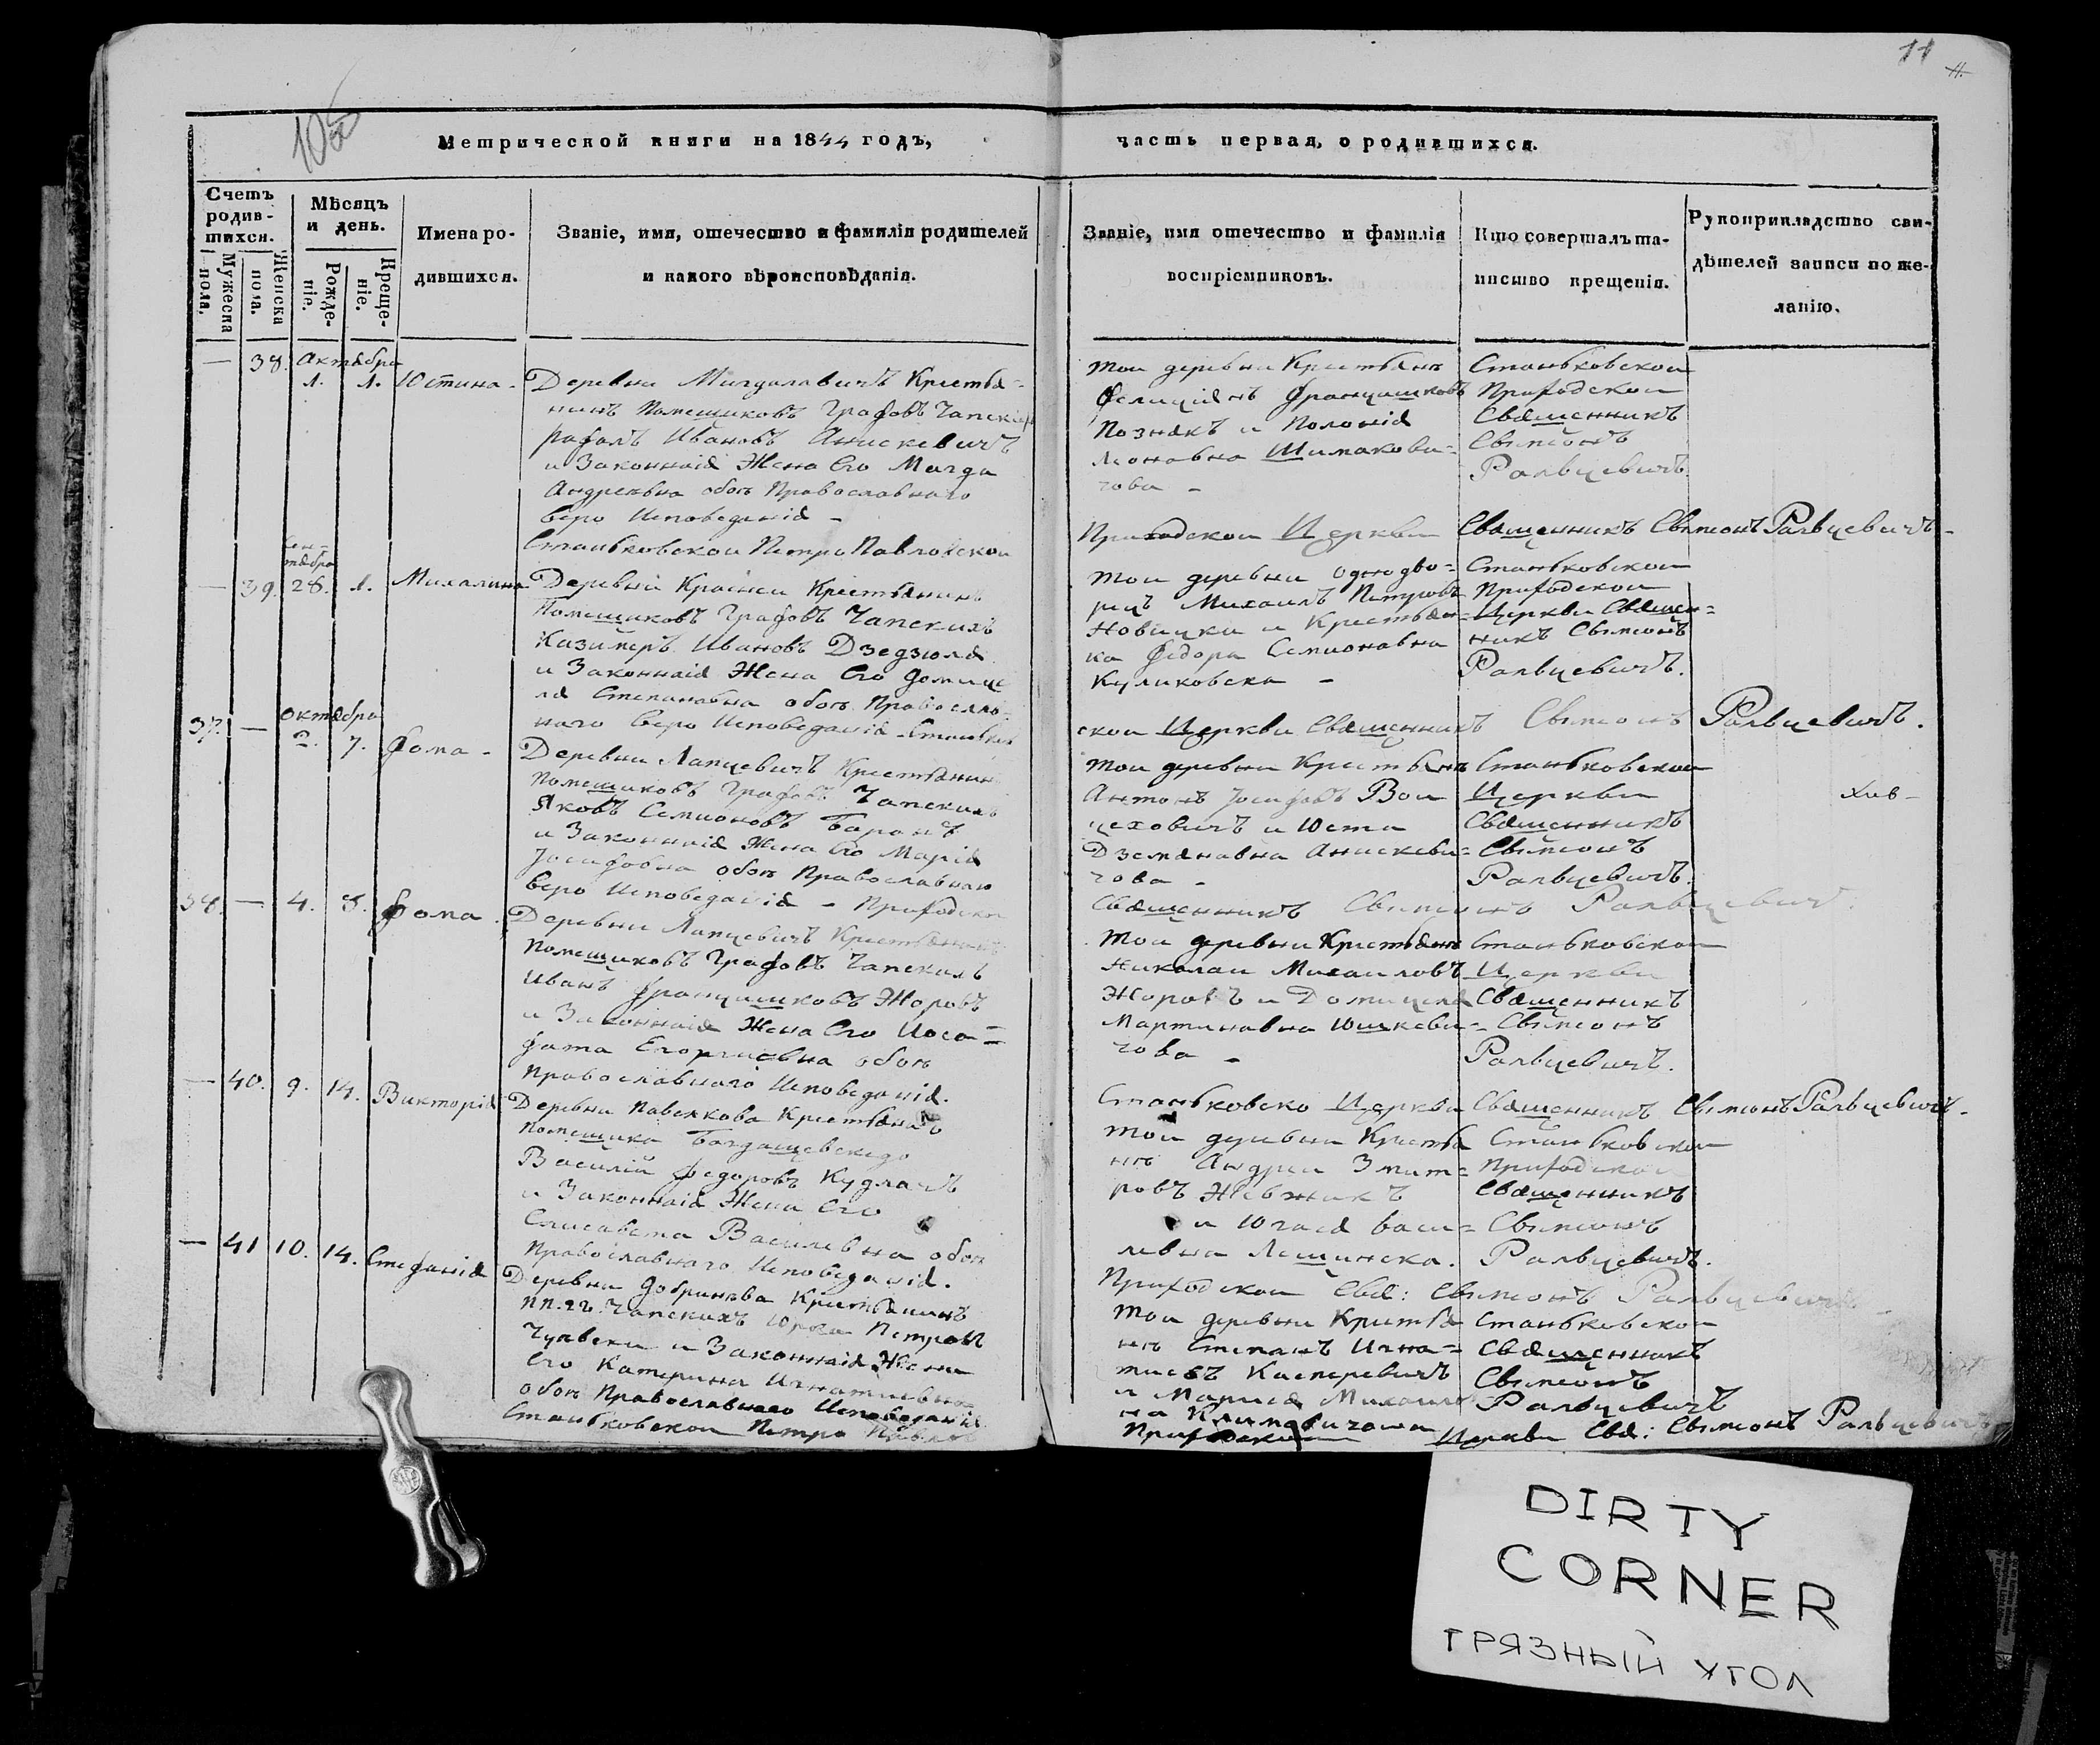 11
11.
105
Метрической книги на 1844 годъ,
часть первая, о родившихся.
Счетъ родившихся.
Мужеска пола.
Женска пола.
Мѣсяцъ и день.
Рожденіе.
Крещеніе.
Имена родившихся.
Званіе, имя, отечество и фамилія родителей
и какого вѣроисповѣданія.
Званіе, имя отечество и фамилія
воспріемниковъ.
Кто совершалъ та-
инство крещенія.
Рукоприкладство сви-
дѣтелей записи по же-
ланію.
— 38. Октября
1. 1. Юстина -
Деревни Мигдалавичъ Крестья=
нинъ Помещиковъ Графовъ Чапскихъ
Рафалъ Ивановъ Анискевичъ
и Законная Жена Его Магда
Андреевна обоя Православнаго
веро Исповеданія -
Станьковской Петро Павловской
той деревни Крестьянъ
Фелиціянъ Францишковъ
Познякъ и Полонія
Леоновна Шимакови=
чова -
Станьковской
Приходской
Священникъ
Свѣмеонъ
Ральцевичъ.
Приходской Церкви Священникъ Свѣмеонъ Ральцевичъ -
Сен=
тября
— 39. 28. 1. Михалина
Деревни Красней Крестьянинъ
Помещиковъ Графовъ Чапскихъ
Казимеръ Ивановъ Дзедзюля
и Законная Жена Его Домице
ля Степановна обоя Православ=
наго веро Исповеданія Станьков
той деревни однодво=
рецъ Михаилъ Петровъ
Новицки и Крестьян=
ка Федора Семионовна
Куликовска -
Станьковской
Приходской
Церкви Священ=
никъ Свѣмеонъ
Ральцевичъ.
ской Церкви Священникъ Свѣмеонъ Ральцевичъ.
37. — Октября
2. 7. Фома -
Деревни Лапцевичъ Крестьянинъ
Помещиковъ Графовъ Чапскихъ
Яковъ Семионовъ Баранъ
и Законная Жена Его Марія
Іосифовна обоя Православнаю
веро Исповеданія - Приходской
той деревни Крестьянъ
Антонъ Іосифовъ Вой
цеховичъ и Юста
Дземяновна Анискеви=
чова -
Станьковской
Церкви
Священникъ
Свѣмеонъ
Ральцевичъ.
Священникъ Свѣмеонъ Ральцевичъ.
38. — 4. 8. Фома.
Деревни Лапцевичъ Крестьянинъ
Помещиковъ Графовъ Чапскихъ
Иванъ Францишковъ Жоровъ
и Законная Жена Его Иоса=
фата Егоргиевна обоя
Православнаго Исповеданія.
той деревни Крестьянъ
Николай Михаиловъ
Жоровъ и Домицеля
Мартиновна Юшкеви=
чова -
Станьковской
Церкви
Священникъ
Свѣмеонъ
Ральцевичъ.
Станьковско Церкви Священникъ Свѣмеонъ Ральцевичъ -
— 40. 9. 14. Викторія
Деревни Павелкова Крестьянинъ
Помещика Богдашевскаго
Василій Федоровъ Кудлачъ
и Законная Жена Его
Елисавета Василевна обоя
Православнаго Исповеданія.
той деревни Крестья
нъ Андрей Змит=
ровъ
и Югася Васи=
левна Лещинска.
Станьковской
Приходской
Священникъ
Свѣмеонъ
Ральцевичъ.
Приходской Свя: Свѣмеонъ Ральцевичъ -
— 41 10. 14. Стефанія
Деревни Добринева Крестьянинъ
ПП. гг. Чапскихъ Юрка Петровъ
и Законная Жена
Его Катерина Игнатиевна
обоя Православнаго Исповеданія
Станьковской Петро Павлов
той деревни Крестья
нъ Степанъ Игна=
тиевъ Касперевичъ
и Марися Михаилов
на Климовичова
Станьковской
Священникъ
Свѣмеонъ
Ральцевичъ
Приходской Церкви Свя: Свѣмеонъ Ральцевичъ
DIRTY
CORNER
ГРЯЗНЫЙ УГОЛ